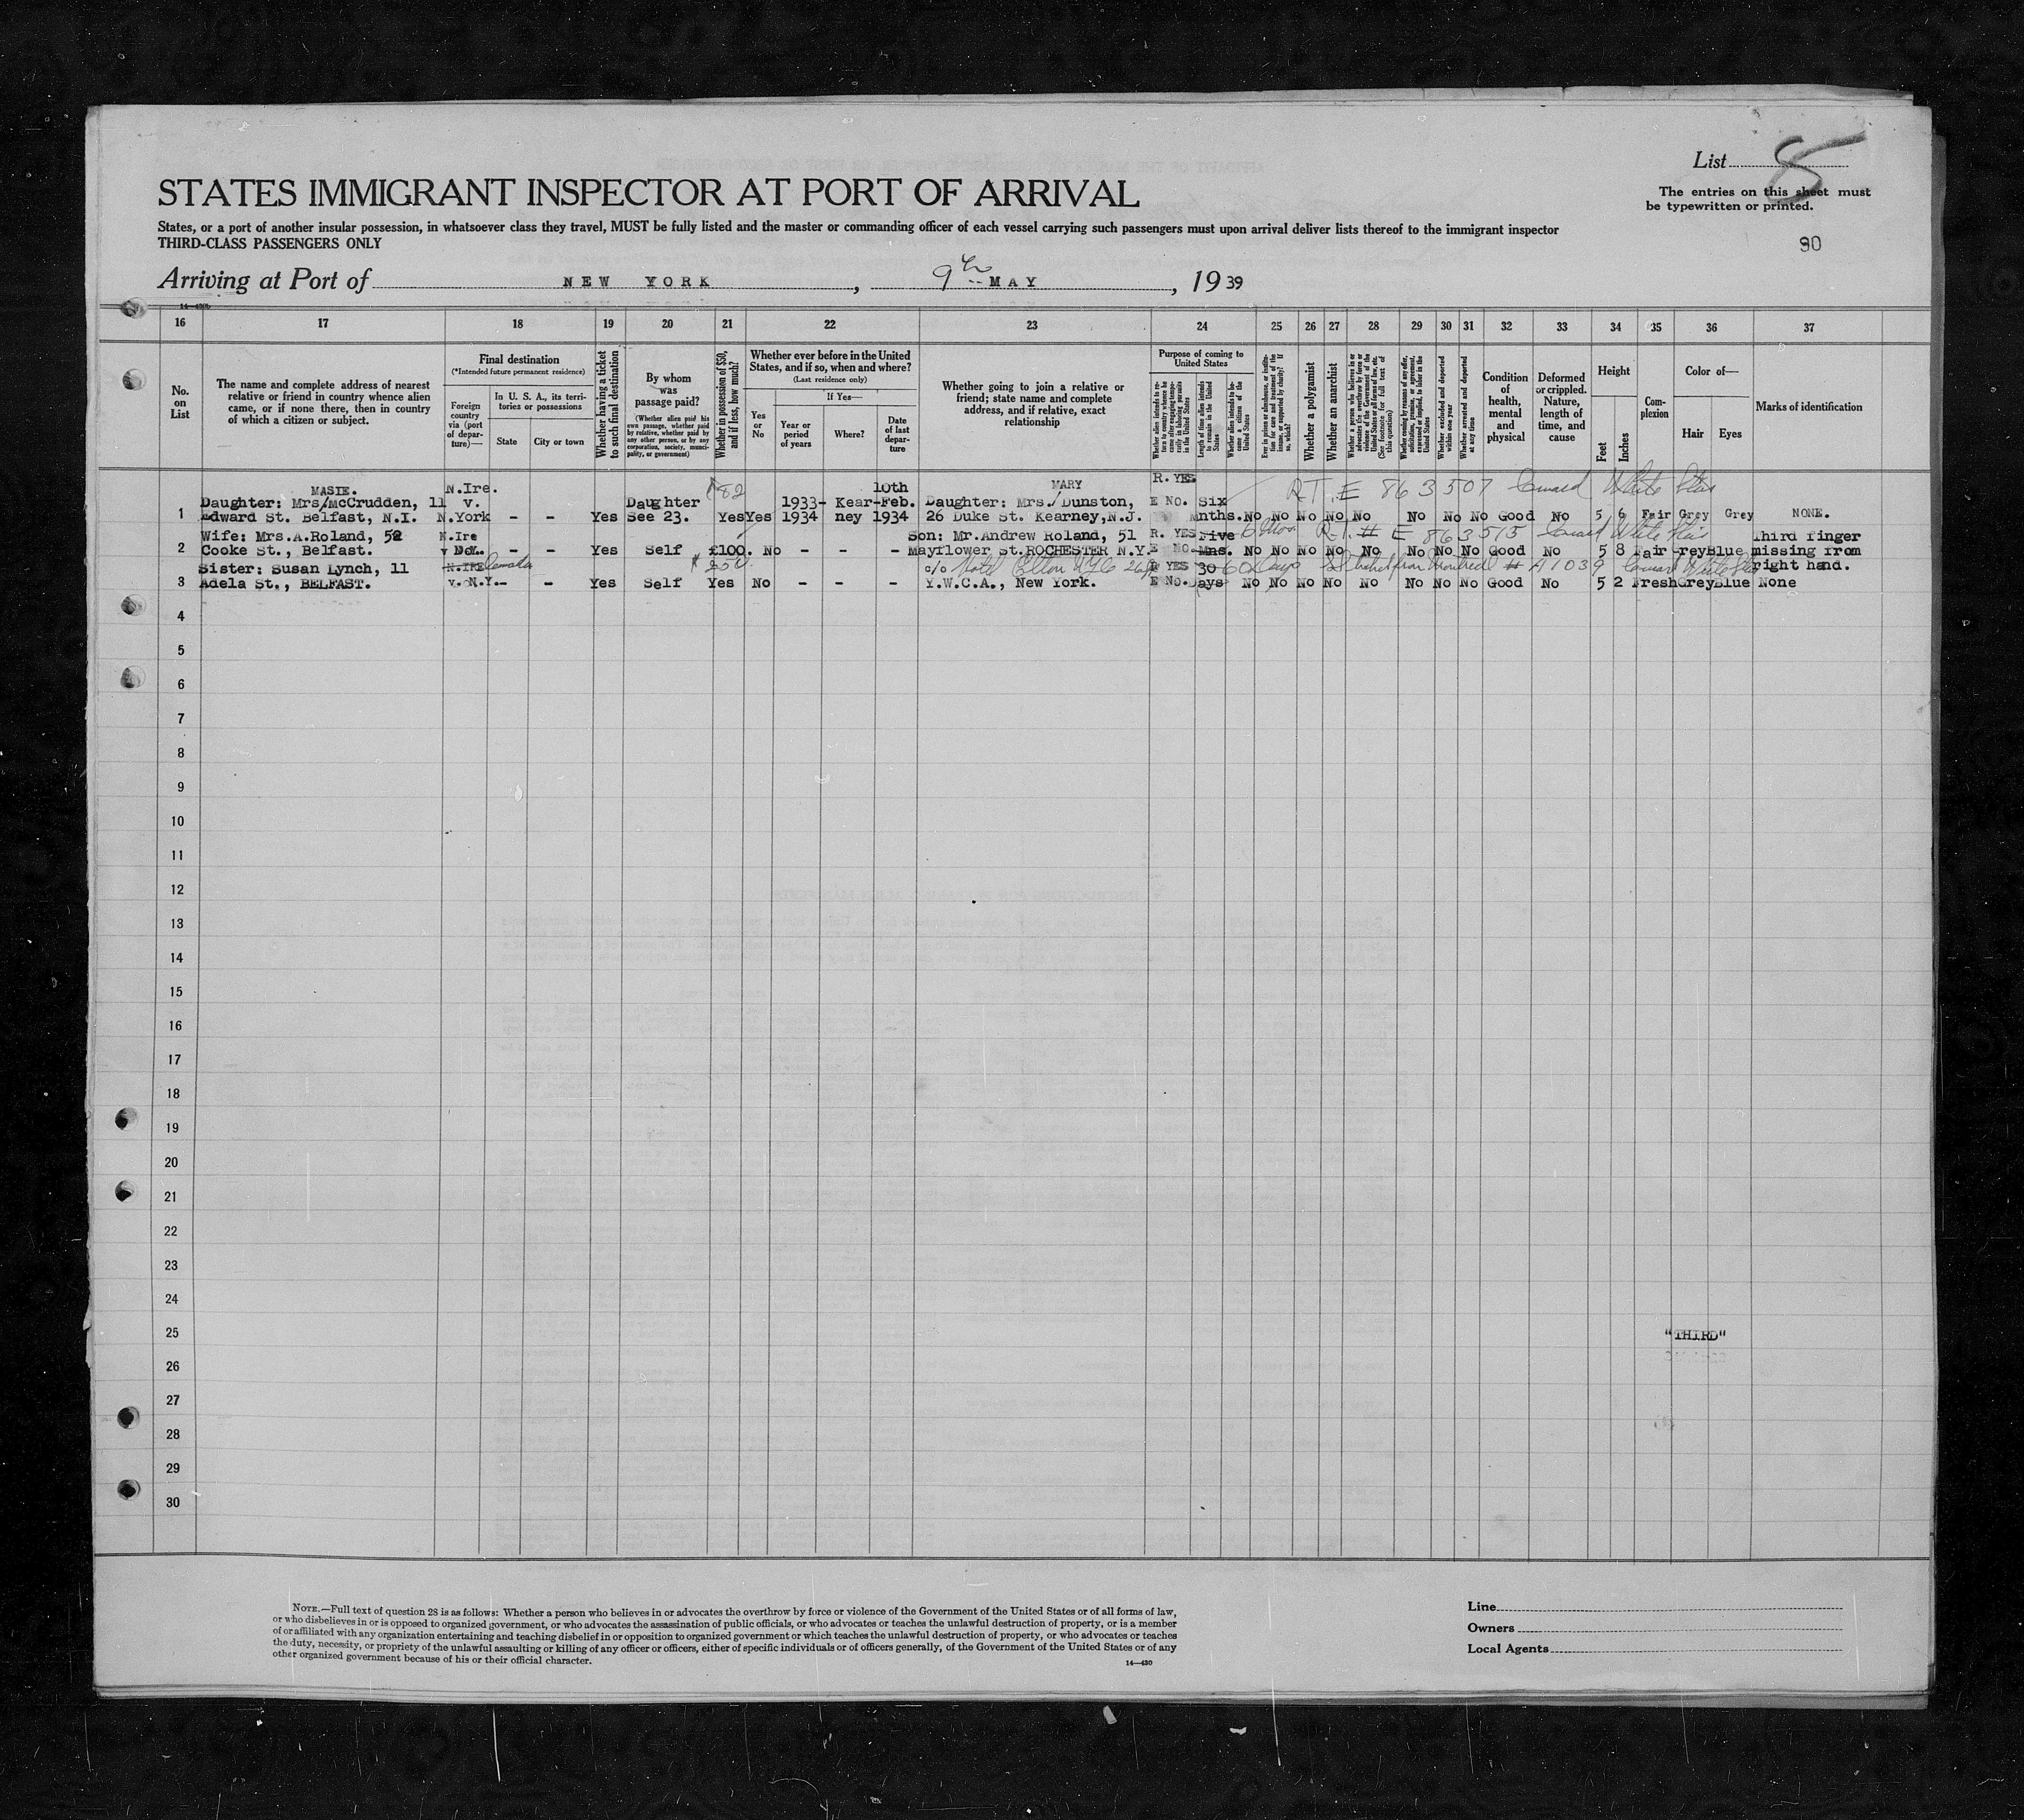 List 8
STATES IMMIGRANT INSPECTOR AT PORT OF ARRIVAL
The entries on this sheet must
be typewritten or printed.
States, or a port of another insular possession, in whatsoever class they travel, MUST be fully listed and the master or commanding officer of each vessel carrying such passengers must upon arrival deliver lists thereof to the immigrant inspector
THIRD-CLASS PASSENGERS ONLY
90
Arriving at Port of NEW YORK, 9th MAY, 1939
16 17 18 19 20 21 22 23 24 25 26 27 28 29 30 31 32 33 34 35 36 37
No. on List
The name and complete address of nearest relative or friend in country whence alien came, or if none there, then in country of which a citizen or subject.
Final destination
(*Intended future permanent residence)
Foreign country via (port of departure)—
In U. S. A., its territories or possessions
State
City or town
Whether having a ticket to such final destination
By whom was passage paid?
(Whether alien paid his own passage, whether paid by relative, whether paid by any other person, or by any corporation, society, municipality, or government)
Whether in possession of $50, and if less, how much?
Whether ever before in the United States, and if so, when and where?
(Last residence only)
Yes or No
If Yes—
Year or period of years
Where?
Date of last departure
Whether going to join a relative or friend; state name and complete address, and if relative, exact relationship
Purpose of coming to United States
Length of time alien intends to remain in the United States
Whether alien intends to become a citizen of the United States
Whether a polygamist
Whether an anarchist
Whether excluded and deported within one year
Whether arrested and deported at any time
Condition of health, mental and physical
Deformed or crippled. Nature, length of time, and cause
Height
Feet
Inches
Complexion
Color of—
Hair
Eyes
Marks of identification
MASIE. N.Ire. 82 10th MARY R. YES RT. E 863507 Cunard White Star
Daughter: Mrs/McCrudden, 11 v. Daughter 1933- Kear- Feb. Daughter: Mrs./Dunston, E NO. Six
1 Edward St. Belfast, N.I. N.York - - Yes See 23. Yes Yes 1934 ney 1934 26 Duke St. Kearney,N.J. Mnths. No No No No No No No No Good No 5 6 Fair Grey Grey NONE.
Wife: Mrs.A.Roland, 52 N.Ire Son: Mr.Andrew Roland, 51 R. YES Five 6 Mos. R.T. # E 863515 Cunard White Star Third finger
2 Cooke St., Belfast. v N.Y. - - Yes Self £100. No - - - Mayflower St.ROCHESTER N.Y. E NO. Mns. No No No No No No No No Good No 5 8 Fair Grey Blue missing from
Sister: Susan Lynch, 11 N.IRE Canada $250 c/o Hotel Elton NYC 26 R YES 30 60 days Ticket from Montreal # A1039 Cunard White Star right hand.
3 Adela St., BELFAST. v. N.Y. - - Yes Self Yes No - - - Y.W.C.A., New York. E NO. Days No No No No No No No No Good No 5 2 Fresh Grey Blue None
4
5
6
7
8
9
10
11
12
13
14
15
16
17
18
19
20
21
22
23
24
25 "THIRD"
26
27
28
29
30
NOTE.—Full text of question 28 is as follows: Whether a person who believes in or advocates the overthrow by force or violence of the Government of the United States or of all forms of law,
or who disbelieves in or is opposed to organized government, or who advocates the assassination of public officials, or who advocates or teaches the unlawful destruction of property, or is a member
of or affiliated with any organization entertaining and teaching disbelief in or opposition to organized government or which teaches the unlawful destruction of property, or who advocates or teaches
the duty, necessity, or propriety of the unlawful assaulting or killing of any officer or officers, either of specific individuals or of officers generally, of the Government of the United States or of any
other organized government because of his or their official character.
14—430
Line
Owners
Local Agents